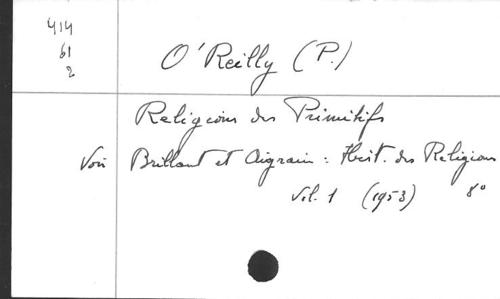 414
61
2
O'Reilly (P.)
Religions des Primitifs
Voir Brillant et Aigrain : Hist. des Religions
Vol. 1 (1953) 8°